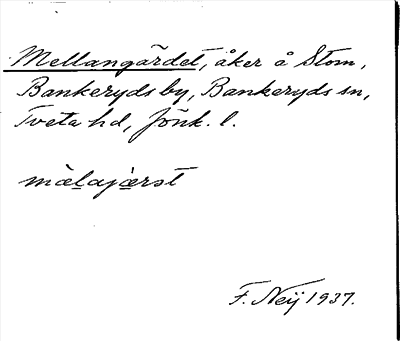 Mellangärdet, åker å Stom,
Bankeryds by, Bankeryds sn,
Tveta hd, Jönk. l.
mælajærst
F. Neij 1937.